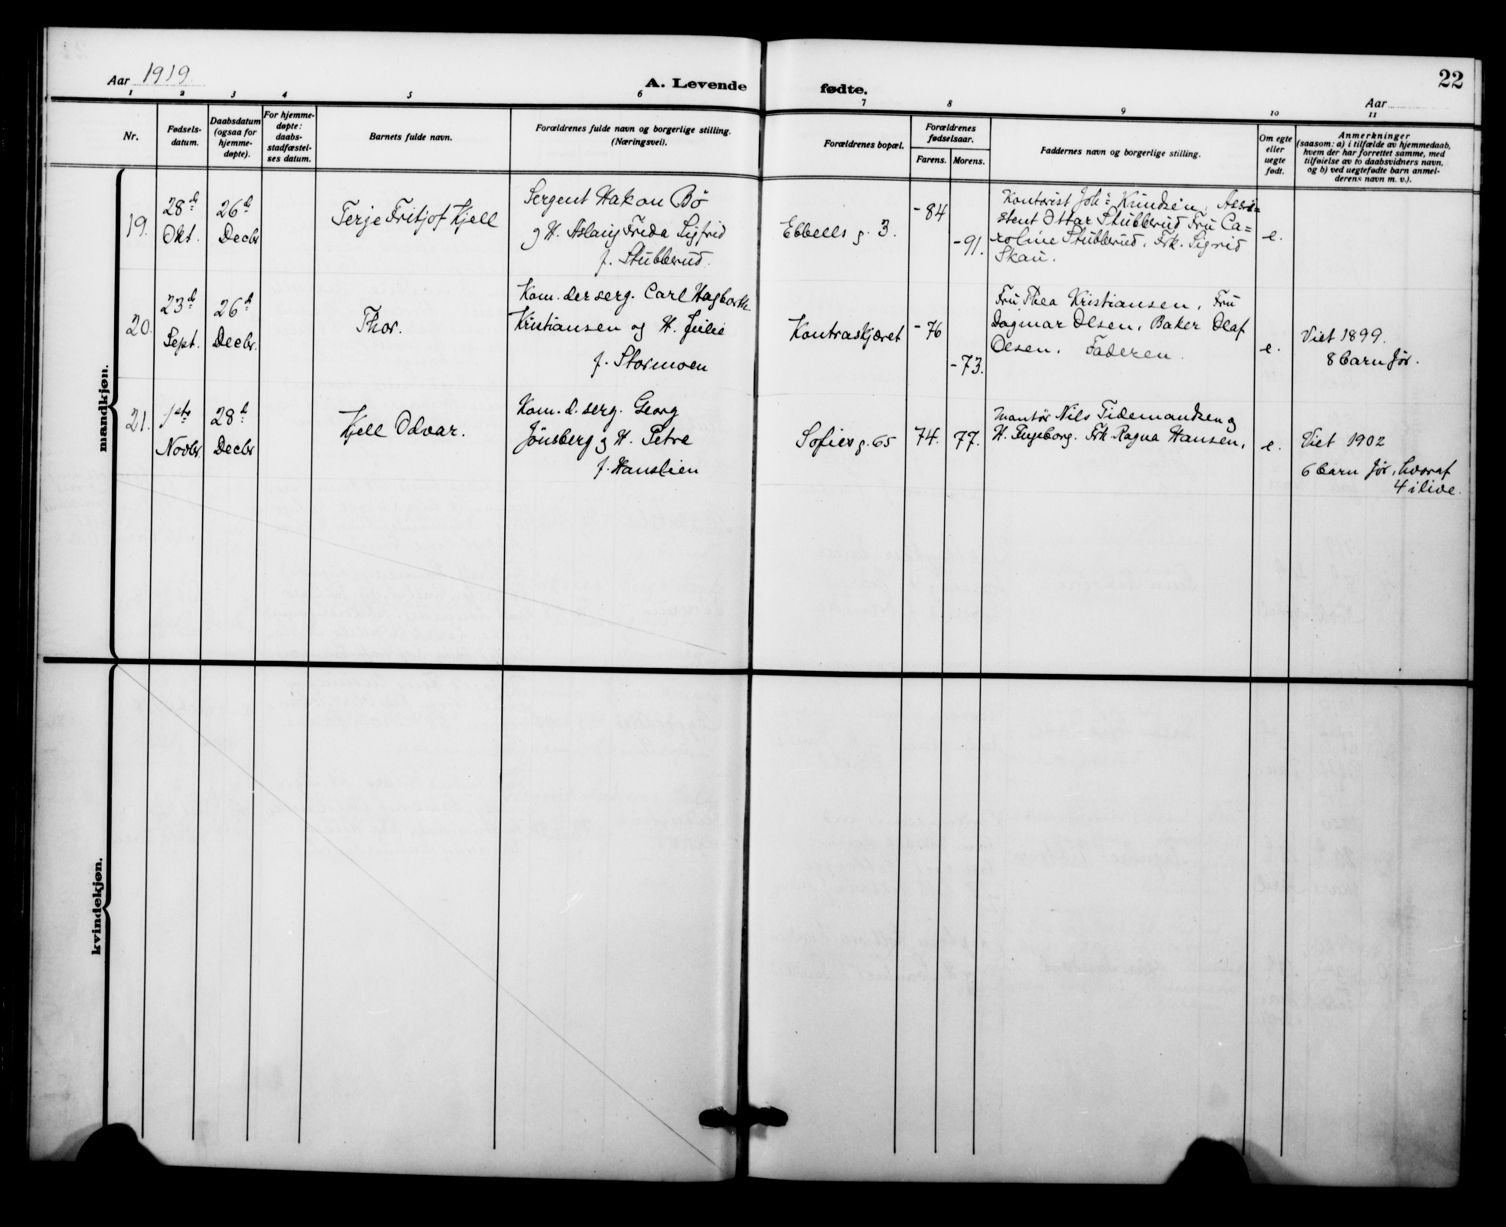 Aar 1919.
A. Levende fødte.
22
Aar
1 2 3 4 5 6 7 8 9 10 11
Nr.
Fødsels-
datum.
Daabsdatum
(ogsaa for
hjemme-
døpte).
For hjemme-
døpte:
daabs-
stadfæstel-
ses datum.
Barnets fulde navn.
Forældrenes fulde navn og borgerlige stilling.
(Næringsvei).
Forældrenes bopæl.
Forældrenes
fødselsaar.
Farens. Morens.
Faddernes navn og borgerlige stilling.
Om egte
eller
uegte
født.
Anmerkninger
(saasom: a) i tilfælde av hjemmedaab,
hvem der har forrettet samme, med
tilføielse av to daabsvidners navn,
og b) ved uegtefødte barn anmel-
derens navn m. v.).
mandkjøn.
19.
28de
Okt.
26de
Decbr
Terje Fritjof Kjell
Sergent Hakon Bø
og H. Aslaug Frida Sigfrid
f. Stubberud.
Ebbells g. 3.
-84
-91.
Kontorist Johs Knudsen, Assi=
stent Ottar Stubberud Fru Ca=
roline Stubberud. Frk. Sigrid
Skau.
e.
20.
23de
Sept.
26de
Decbr.
Thor.
Kom. der serg. Carl Hagbarth
Kristiansen og H. Julie
f. Stormoen
Kontraskjæret
-76
-73.
Fru Thea Kristiansen, Fru
Dagmar Olsen, Baker Olaf
Olsen. Faderen.
e.
Viet 1899.
8 barn før.
21.
1ste
Novbr.
28de
Decbr
Kjell Odvar.
Kom. d. serg. Georg
Jönsberg og H. Petra
f. Hanslien
Sofies g. 65
74.
77.
Montør Nils Tidemandsen og
H. Ingeborg. Frk Ragna Hansen,
e.
Viet 1902
6 barn før, hvoraf
4 i live.
kvindekjøn.